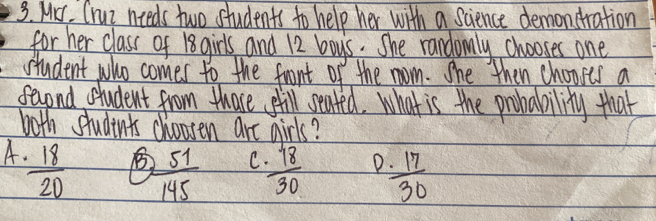 3. Mrs. Cruz needs two students to help her with a science demonstration
for her class of 18 girls and 12 boys. She randomly chooses one
student who comes to the front of the room. She then chooses a
second student from those still seated. What is the probability that
both students choosen are girls?
A. 18/20 B. 51/145 C. 18/30 D. 17/30